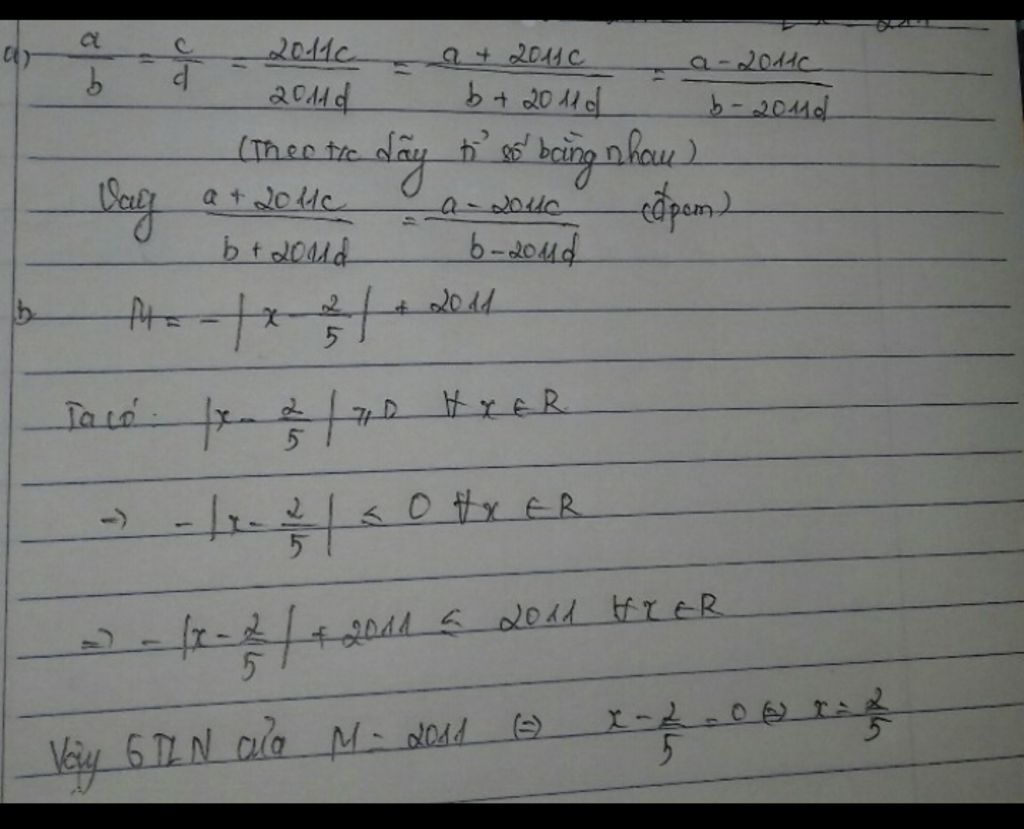 a) a/b = c/d = 2011c/2011d = a + 2011c/b + 2011d = a - 2011c/b - 2011d
(Theo t/c dãy tỉ số bằng nhau)
Vay a + 2011c/b + 2011d = a - 2011c/b - 2011d (đpcm)
b M = - |x - 2/5| + 2011
Ta có: |x - 2/5| ≥ 0 ∀ x ∈ R
=> - |x - 2/5| ≤ 0 ∀x ∈ R
=> - |x - 2/5| + 2011 ≤ 2011 ∀x ∈ R
Vậy GTLN của M = 2011 (=) x - 2/5 = 0 (=) x = 2/5